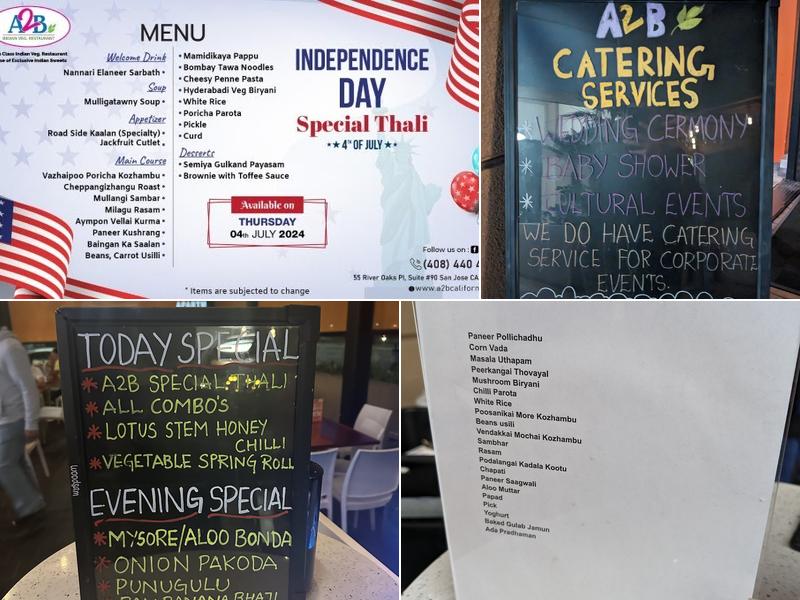 A2B
INDIAN VEG. RESTAURANT
Class Indian Veg. Restaurant
se of Exclusive Indian Sweets
MENU
Welcome Drink
Nannari Elaneer Sarbath •
Soup
Mulligatawny Soup •
Appetizer
Road Side Kaalan (Specialty) •
Jackfruit Cutlet •
Main Course
Vazhaipoo Poricha Kozhambu •
Cheppangizhangu Roast •
Mullangi Sambar •
Milagu Rasam •
Aympon Vellai Kurma •
Paneer Kushrang •
Baingan Ka Saalan •
Beans, Carrot Usilli •
• Mamidikaya Pappu
• Bombay Tawa Noodles
• Cheesy Penne Pasta
• Hyderabadi Veg Biryani
• White Rice
• Poricha Parota
• Pickle
• Curd
Desserts
• Semiya Gulkand Payasam
• Brownie with Toffee Sauce
INDEPENDENCE
DAY
Special Thali
★★ 4TH OF JULY ★★
Available on
THURSDAY
04th JULY 2024
Follow us on :
(408) 440
55 River Oaks Pl, Suite #90 San Jose CA
www.a2bcaliforn
* Items are subjected to change
A2B
CATERING
SERVICES
* WEDDING CERMONY
* BABY SHOWER
* CULTURAL EVENTS
WE DO HAVE CATERING
SERVICE FOR CORPORATE
EVENTS.
TODAY SPECIAL
* A2B SPECIAL THALI
* ALL COMBO'S
* LOTUS STEM HONEY
CHILLI
* VEGETABLE SPRING ROLL
EVENING SPECIAL
* MYSORE/ALOO BONDA
* ONION PAKODA
* PUNUGULU
BANANA BHAJI
Paneer Pollichadhu
Corn Vada
Masala Uthapam
Peerkangai Thovayal
Mushroom Biryani
Chilli Parota
White Rice
Poosanikai More Kozhambu
Beans usili
Vendakkai Mochai Kozhambu
Sambhar
Rasam
Podalangai Kadala Kootu
Chapati
Paneer Saagwali
Aloo Muttar
Papad
Pick
Yoghurt
Baked Gulab Jamun
Ada Pradhaman